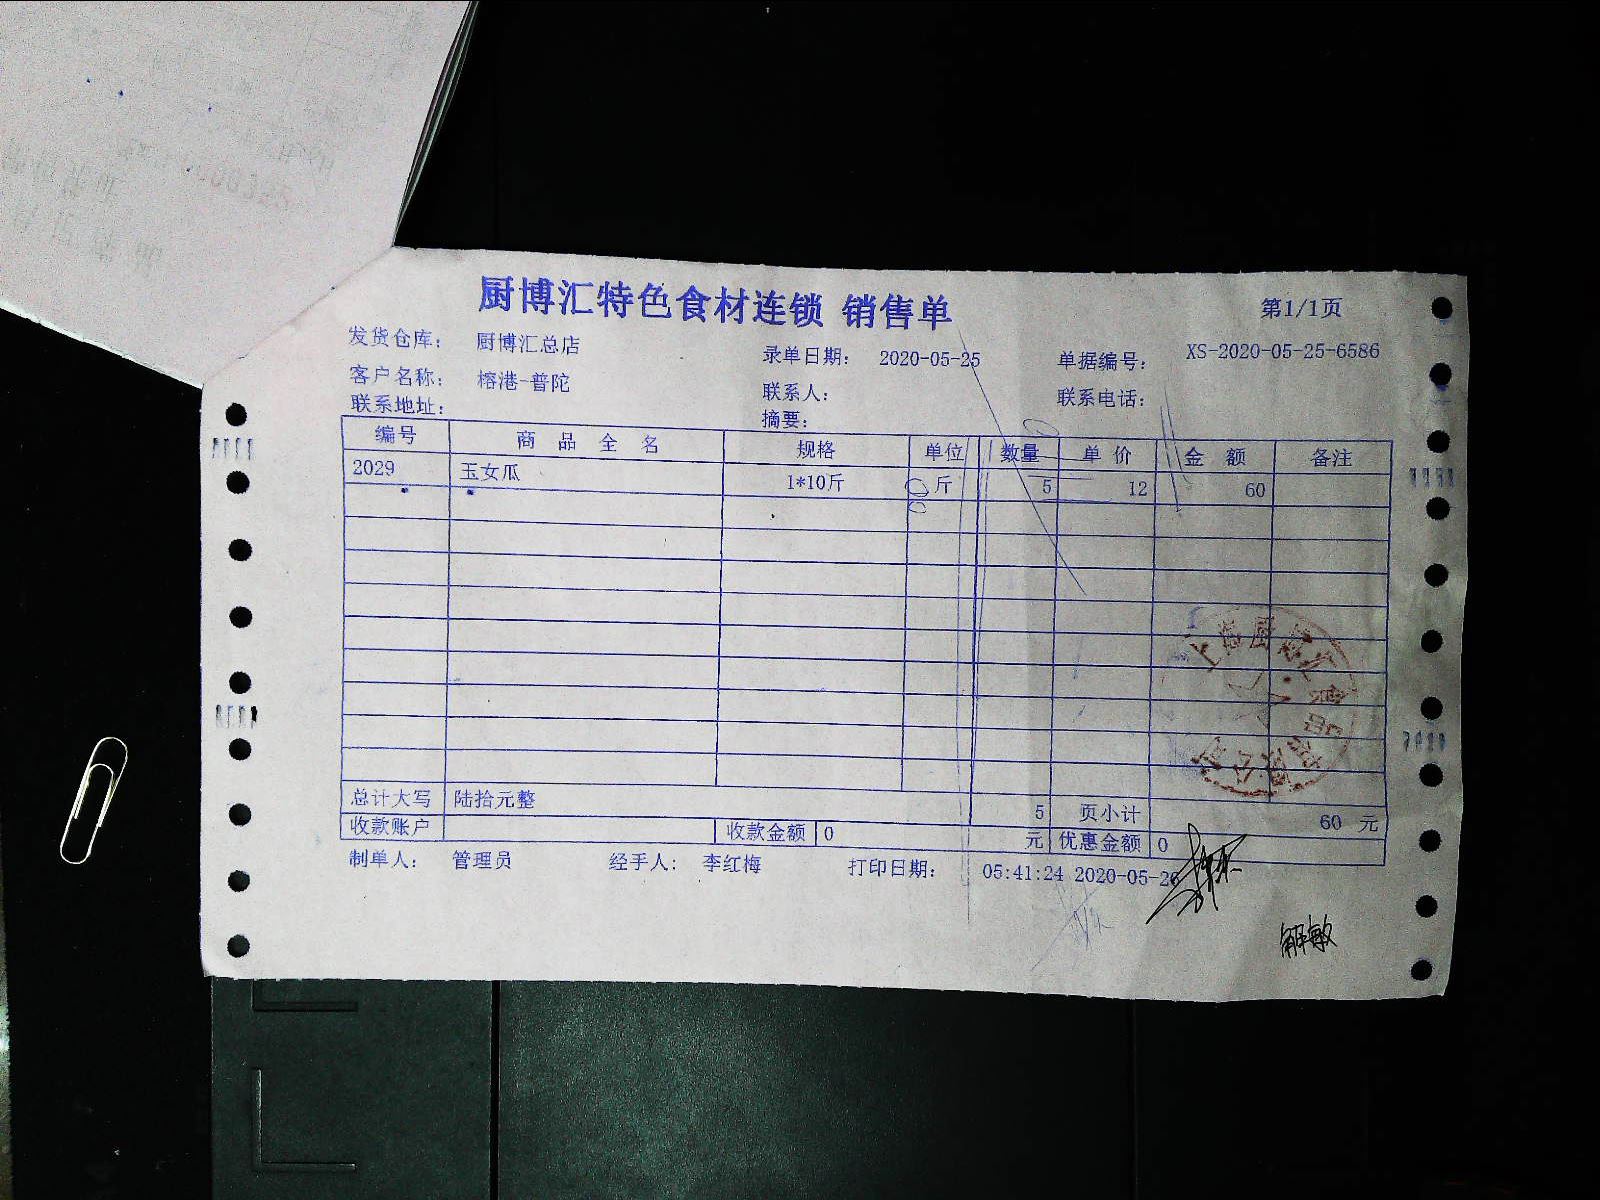 厨博汇特色食材连锁 销售单
第1/1页
发货仓库: 厨博汇总店
录单日期: 2020-05-25
单据编号: XS-2020-05-25-6586
客户名称: 榕港-普陀
联系人:
联系电话:
联系地址:
摘要:
编号 商品全名 规格 单位 数量 单价 金额 备注
2029 玉女瓜 1*10斤 斤 5 12 60
总计大写 陆拾元整 5 页小计 60 元
收款账户 收款金额 0 元 优惠金额 0
制单人: 管理员 经手人: 李红梅 打印日期: 05:41:24 2020-05-26
解敏